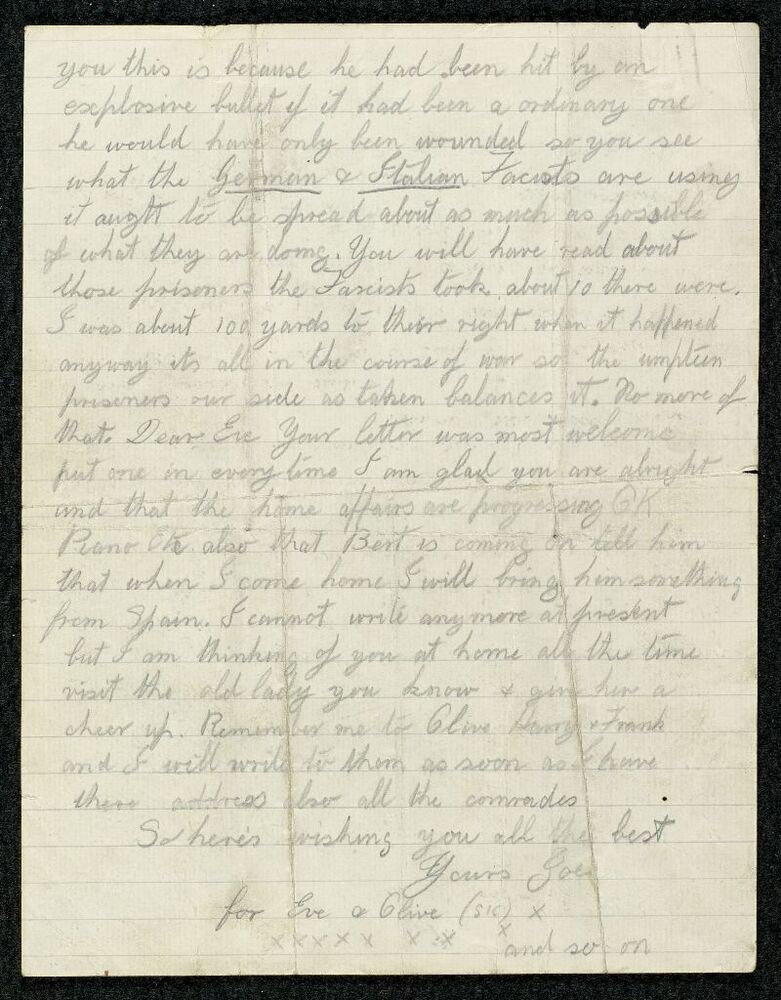 you this is because he had been hit by an
explosive bullet if it had been a ordinary one
he would have only been wounded so you see
what the German & Italian Facists are using
it aught to be spread about as much as possible
of what they are doing. You will have read about
those prisoners the Fascists took about 10 there were.
I was about 100 yards to their right when it happened
anyway its all in the course of war so the umpteen
prisoners our side as taken balances it. No more of
that. Dear Eve Your letter was most welcome
put one in every time I am glad you are alright
and that the home affairs are progressing OK
Piano Etc also that Bert is coming on tell him
that when I come home I will bring him something
from Spain. I cannot write anymore at present
but I am thinking of you at home all the time
visit the old lady you know & give her a
cheer up. Remember me to Olive Harry & Frank
and I will write to them as soon as I have
there address also all the comrades
So here's wishing you all the best
Yours Joe
for Eve & Olive (SIC) x
x x x x x x x x
and so on